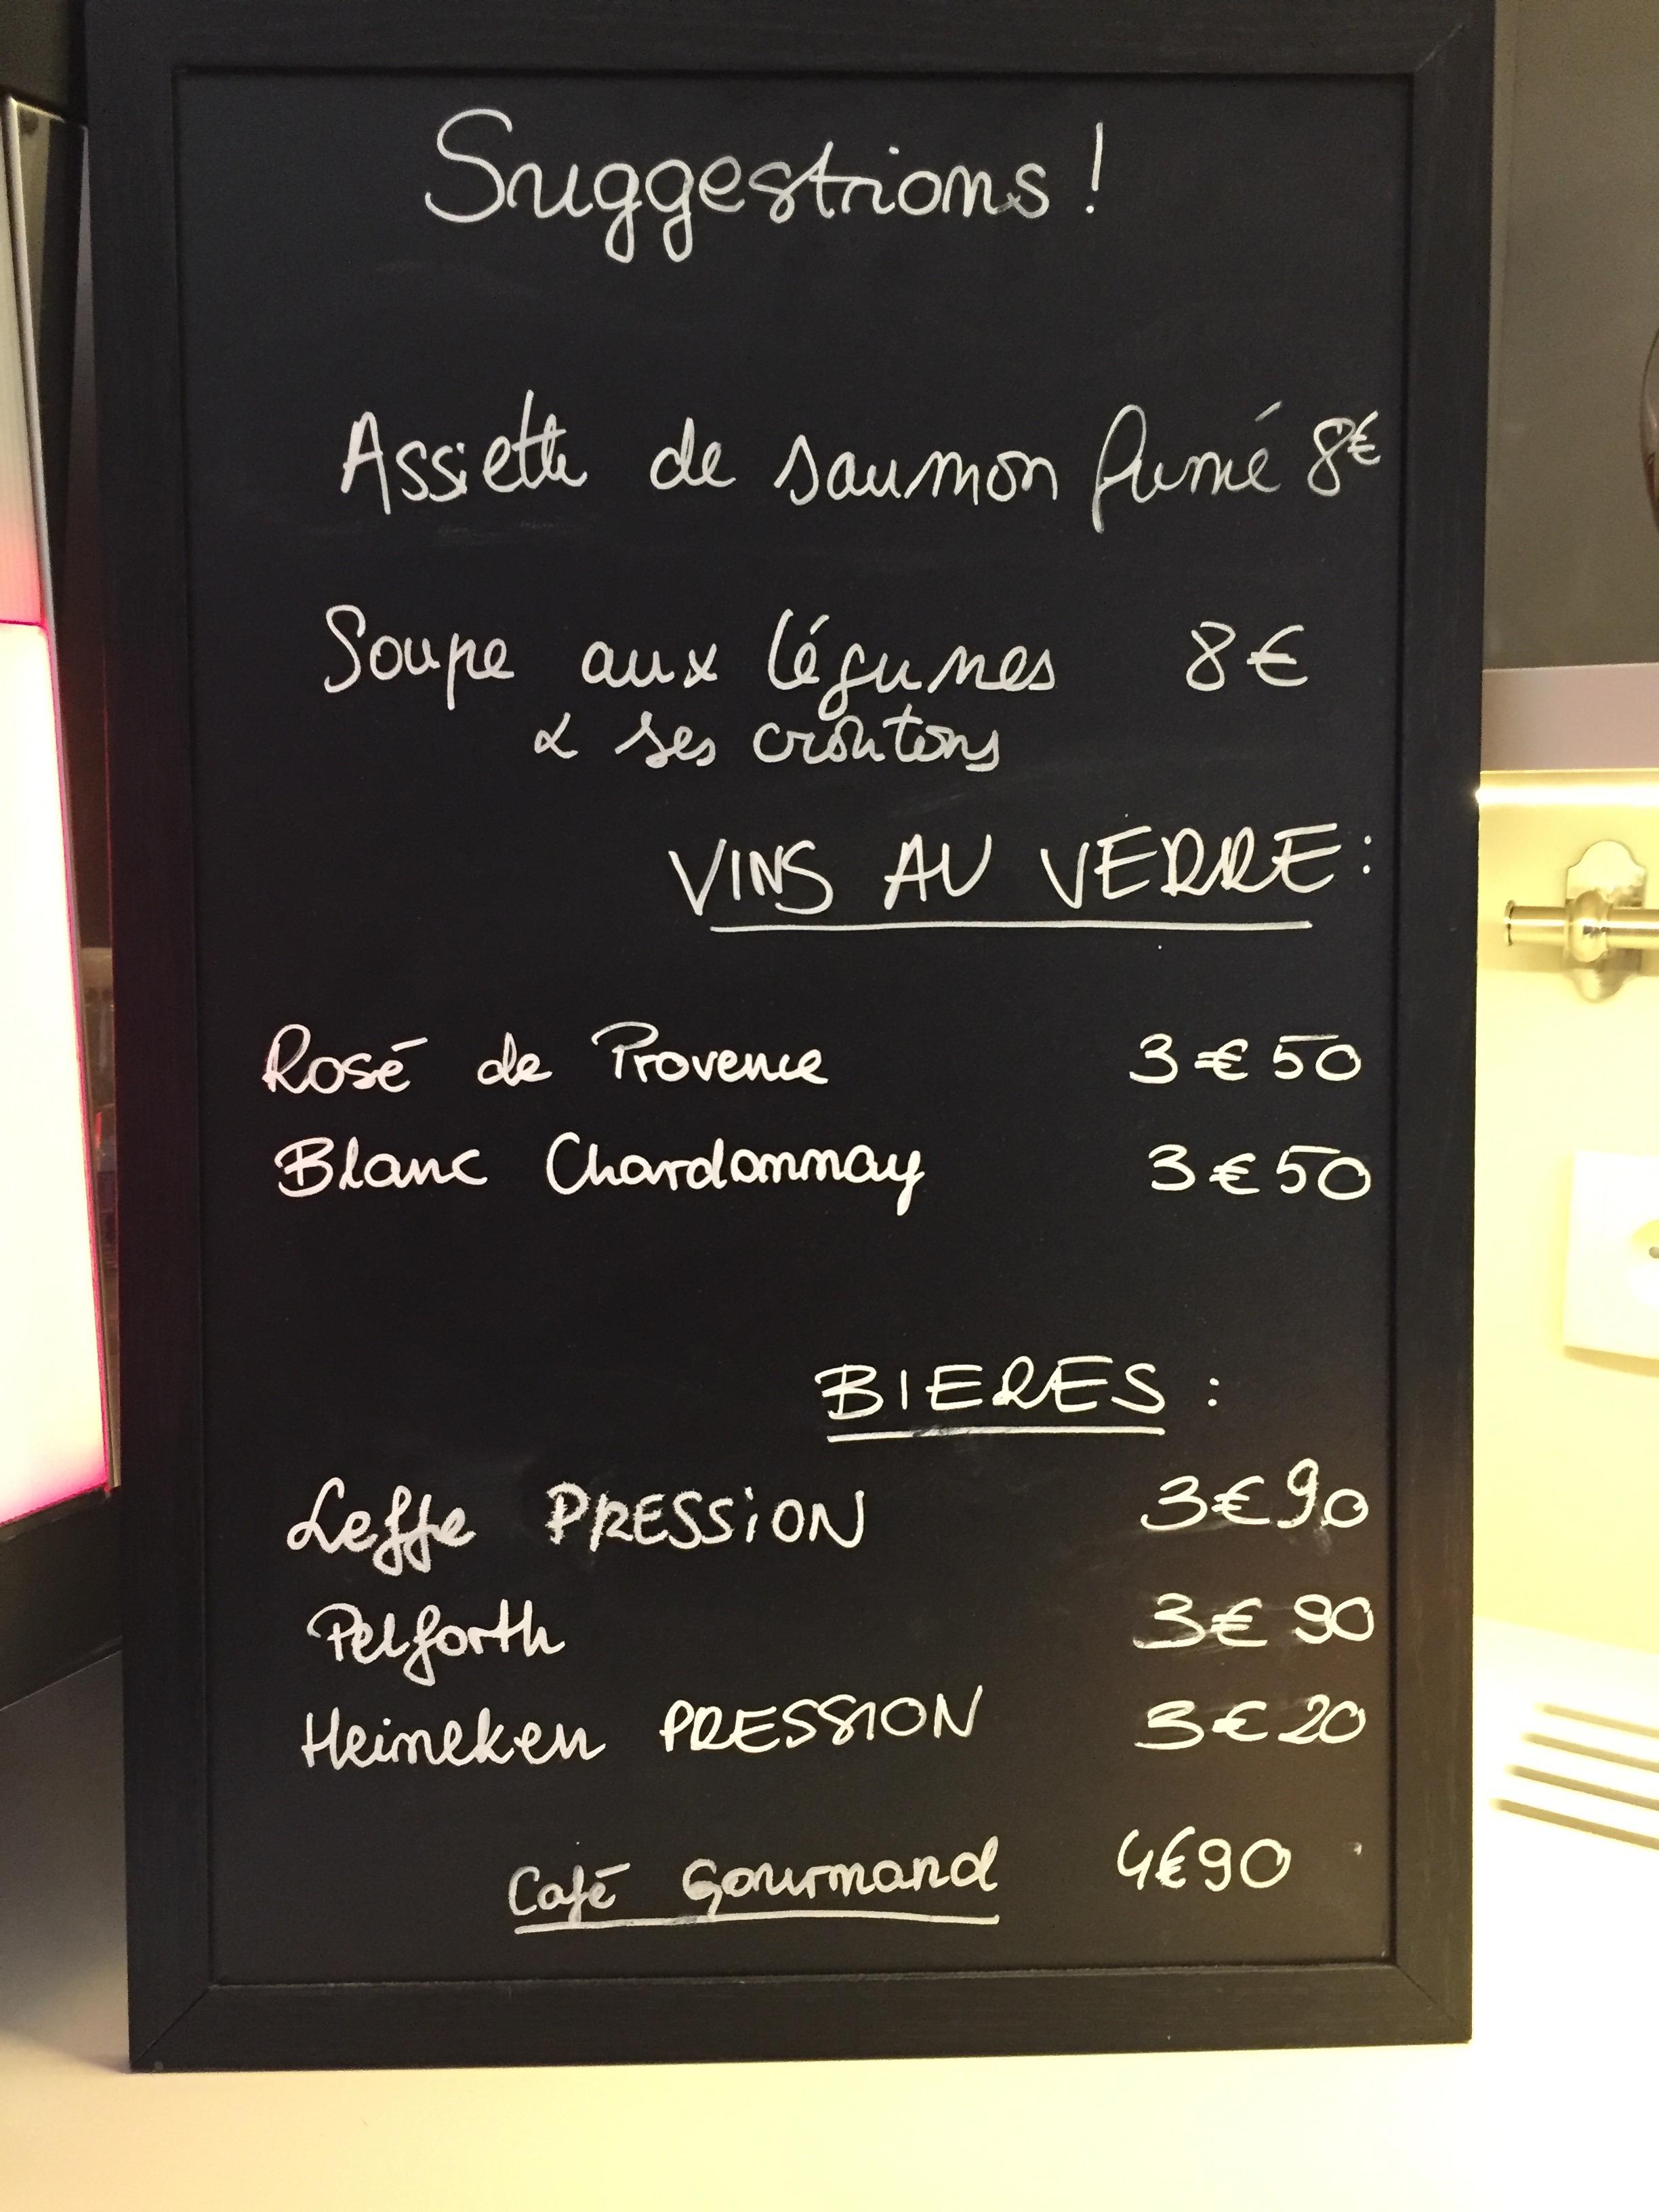 Suggestions !
Assiette de saumon fumé 8€
Soupe aux légumes 8€
& ses croûtons
VINS AU VERRE :
Rosé de Provence 3€50
Blanc Chardonnay 3€50
BIERES :
Leffe PRESSiON 3€90
Pelforth 3€90
Heineken PRESSION 3€20
Café Gourmand 4€90